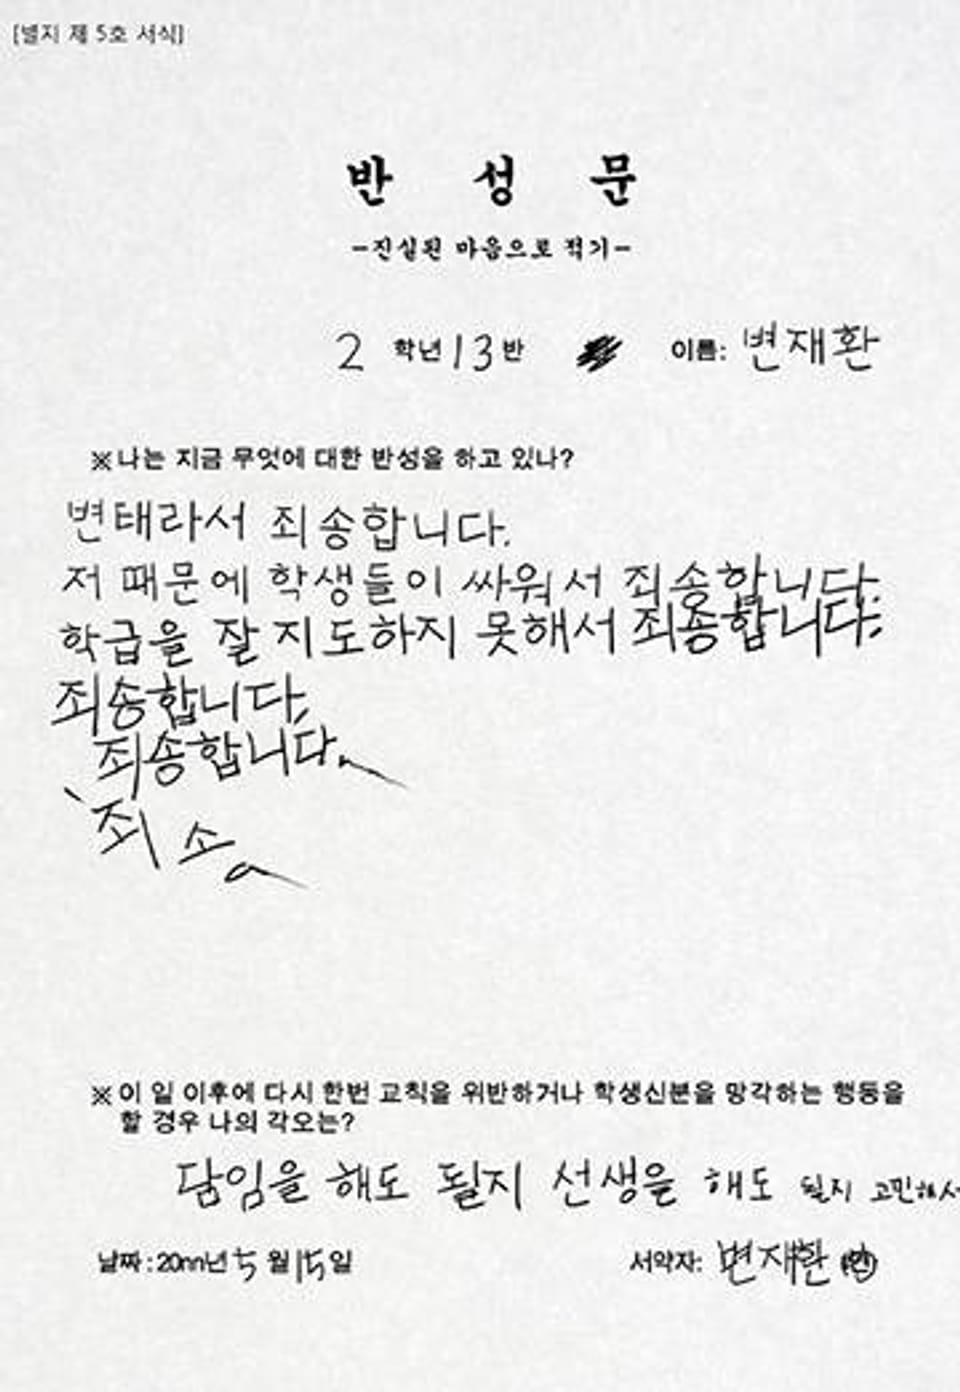 [별지 제 5호 서식]
반 성 문
-진실된 마음으로 적기-
2 학년 13 반 이름: 변재환
※나는 지금 무엇에 대한 반성을 하고 있나?
변태라서 죄송합니다.
저 때문에 학생들이 싸워서 죄송합니다.
학급을 잘 지도하지 못해서 죄송합니다.
죄송합니다.
죄송합니다.
죄소
※이 일 이후에 다시 한번 교칙을 위반하거나 학생신분을 망각하는 행동을
할 경우 나의 각오는?
담임을 해도 될지 선생을 해도 될지 고민해서
날짜:20nn년 5 월 15일 서약자: 변재환